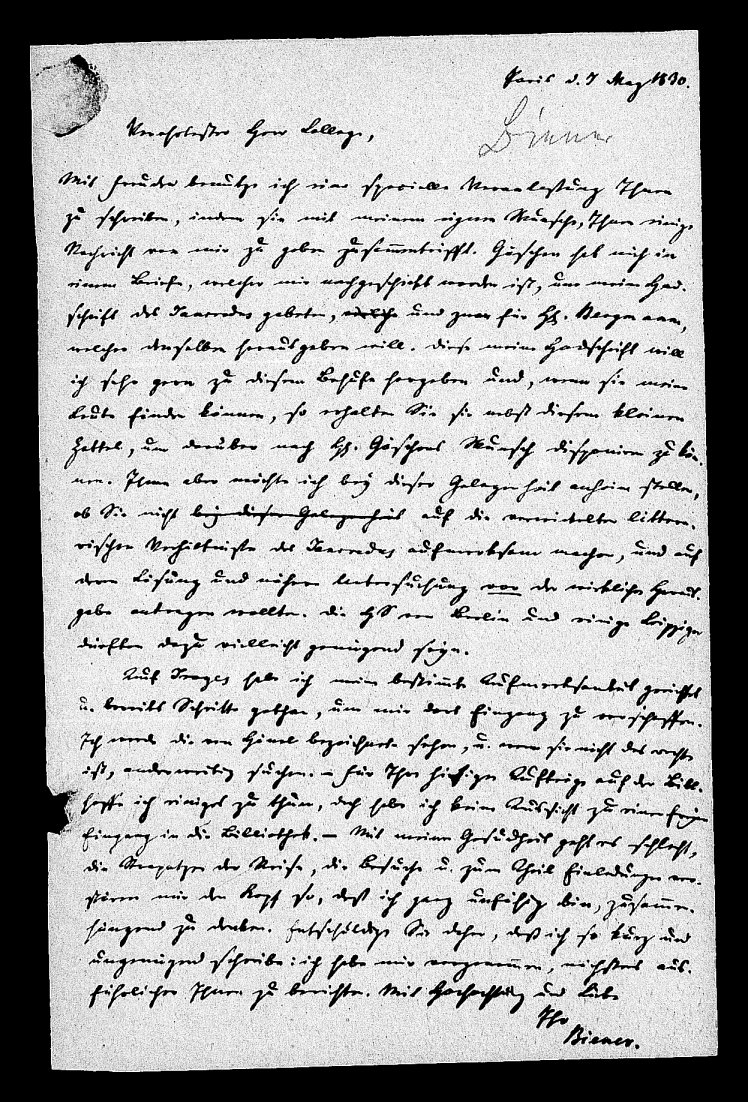 Paris d. 7 May 1830.
Biener
Verehrtester Herr College,
Mit Freuden benutze ich eine specielle Veranlassung Ihnen
zu schreiben, indem sie mit meinem eignen Wunsche, Ihnen einige
Nachricht von mir zu geben zusammentrifft. Göschen hat mich in
einem Briefe, welcher mir nachgeschickt worden ist, um meine Hand-
schrift des Tancredus gebeten, welche und zwar für H. Bergmann,
welcher denselben herausgeben will. Diese meine Handschrift will
ich sehr gern zu diesem Behufe hergeben und, wenn sie meine
Leute finden können, so erhalten Sie sie nebst diesem kleinen
Zettel, um darüber nach H. Göschens Wunsch disponiren zu kön-
nen. Ihnen aber möchte ich bey dieser Gelegenheit anheim stellen,
ob Sie nicht bey dieser Gelegenheit auf die verwickelten littera-
rischen Verhältnisse des Tancredus aufmerksam machen, und auf
deren Lösung und nähere Untersuchung vor der wirklichen Heraus-
gabe antragen wollten. Die HS von Berlin und einige Leipziger
dürften dazu vielleicht genügend seyn.
Auf habe ich meine bestimmte Aufmerksamkeit gerichtet
u. bereits Schritte gethan, um mir dort Eingang zu verschaffen.
Ich werde die von Hänel bezeichnete sehen, u. wenn sie nicht das rechte
ist, anderweitig suchen. – Für Ihre hiesigen Aufträge auf der Bibl.
hoffe ich einiges zu thun, doch habe ich keine Aussicht zu einem freyen
Eingang in die Bibliothek. – Mit meiner Gesundheit geht es schlecht,
die Strapatzen der Reise, die Besuche u. zum Theil Einladungen ver-
stören mir den Kopf so, daß ich ganz unfähig bin, zusammen-
hängend zu denken. Entschuldigen Sie daher, daß ich so kurz und
ungenügend schreibe: ich habe mir vorgenommen, nächstens aus-
führlicher Ihnen zu berichten. Mit Hochachtung und Liebe
Ihr
Biener.